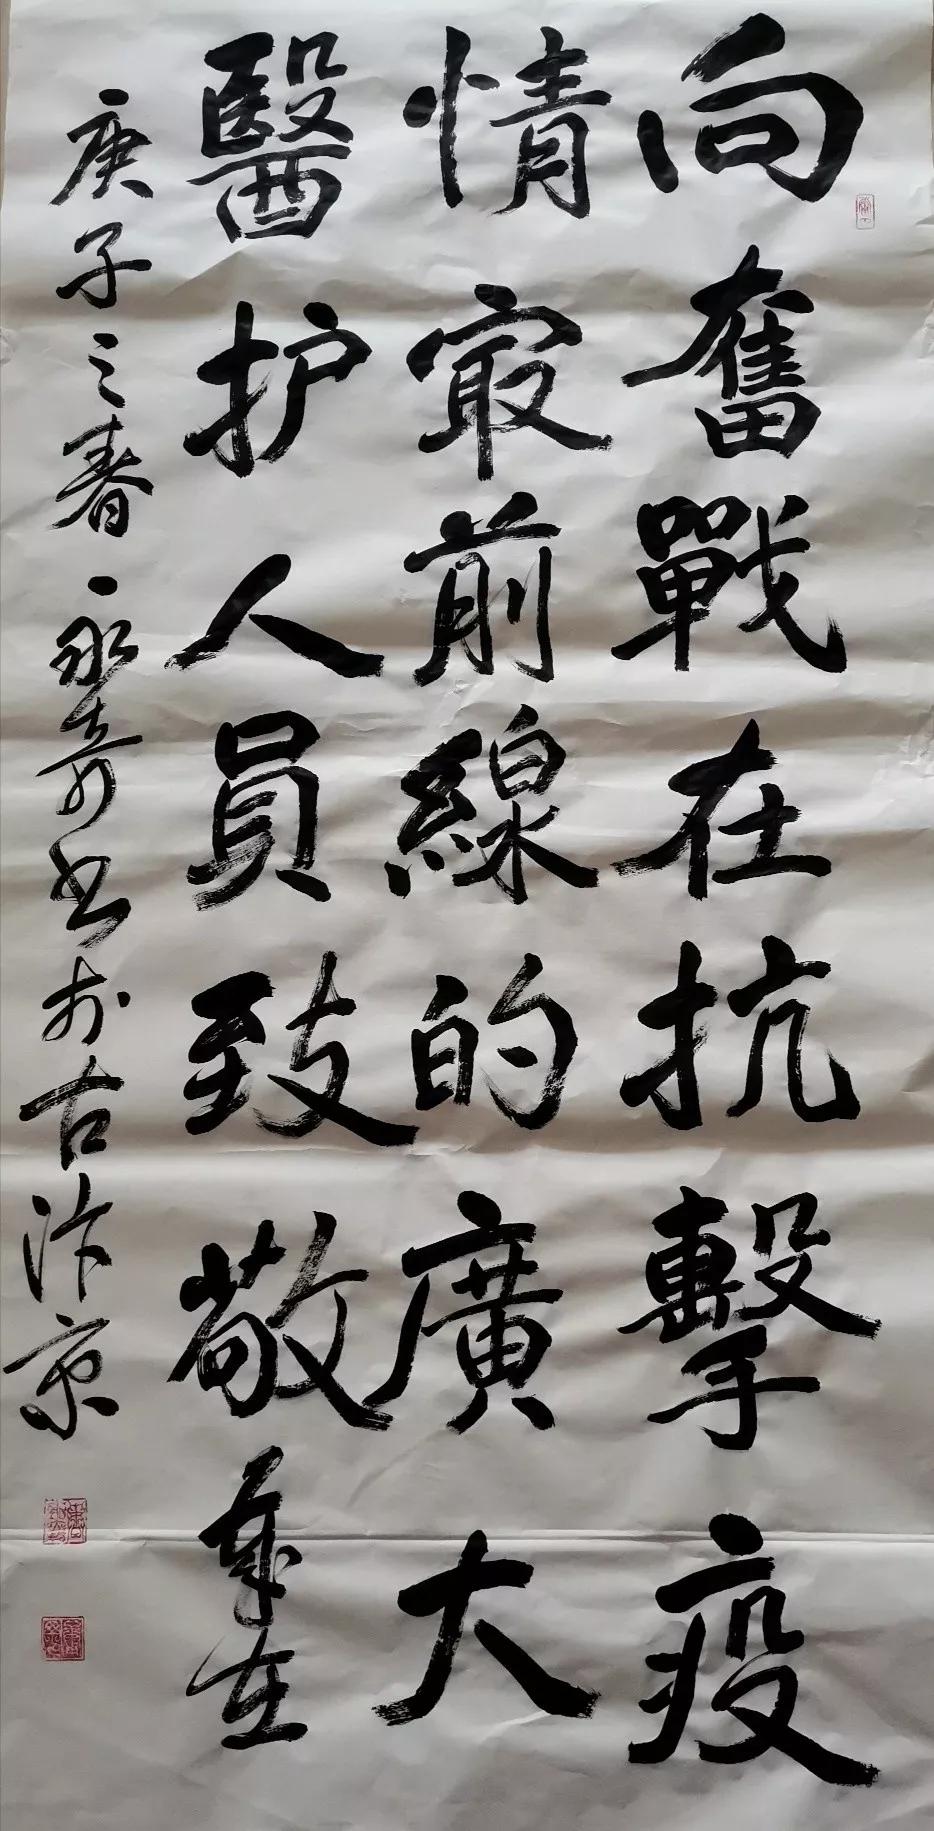 向奮戰在抗擊疫
情最前線的廣大
醫护人員致敬歲在
庚子之春永奇书於古汴京